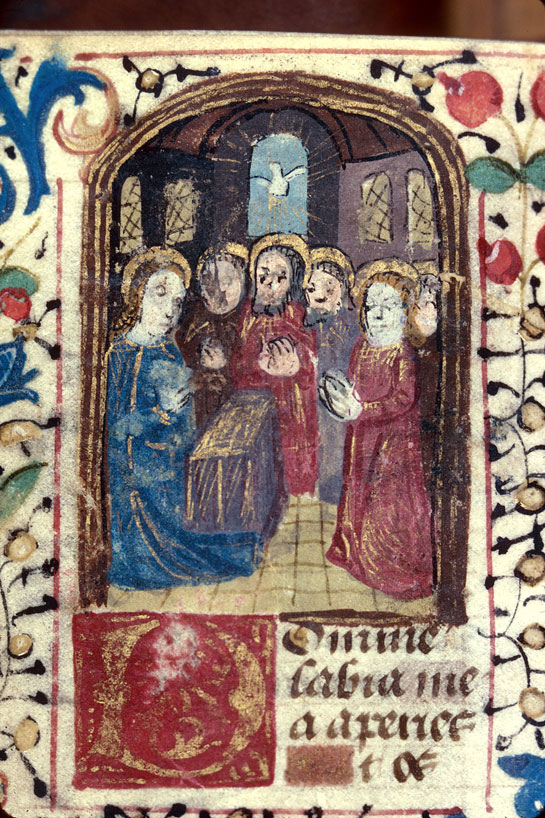 Domine
labia me
a aperies
t os